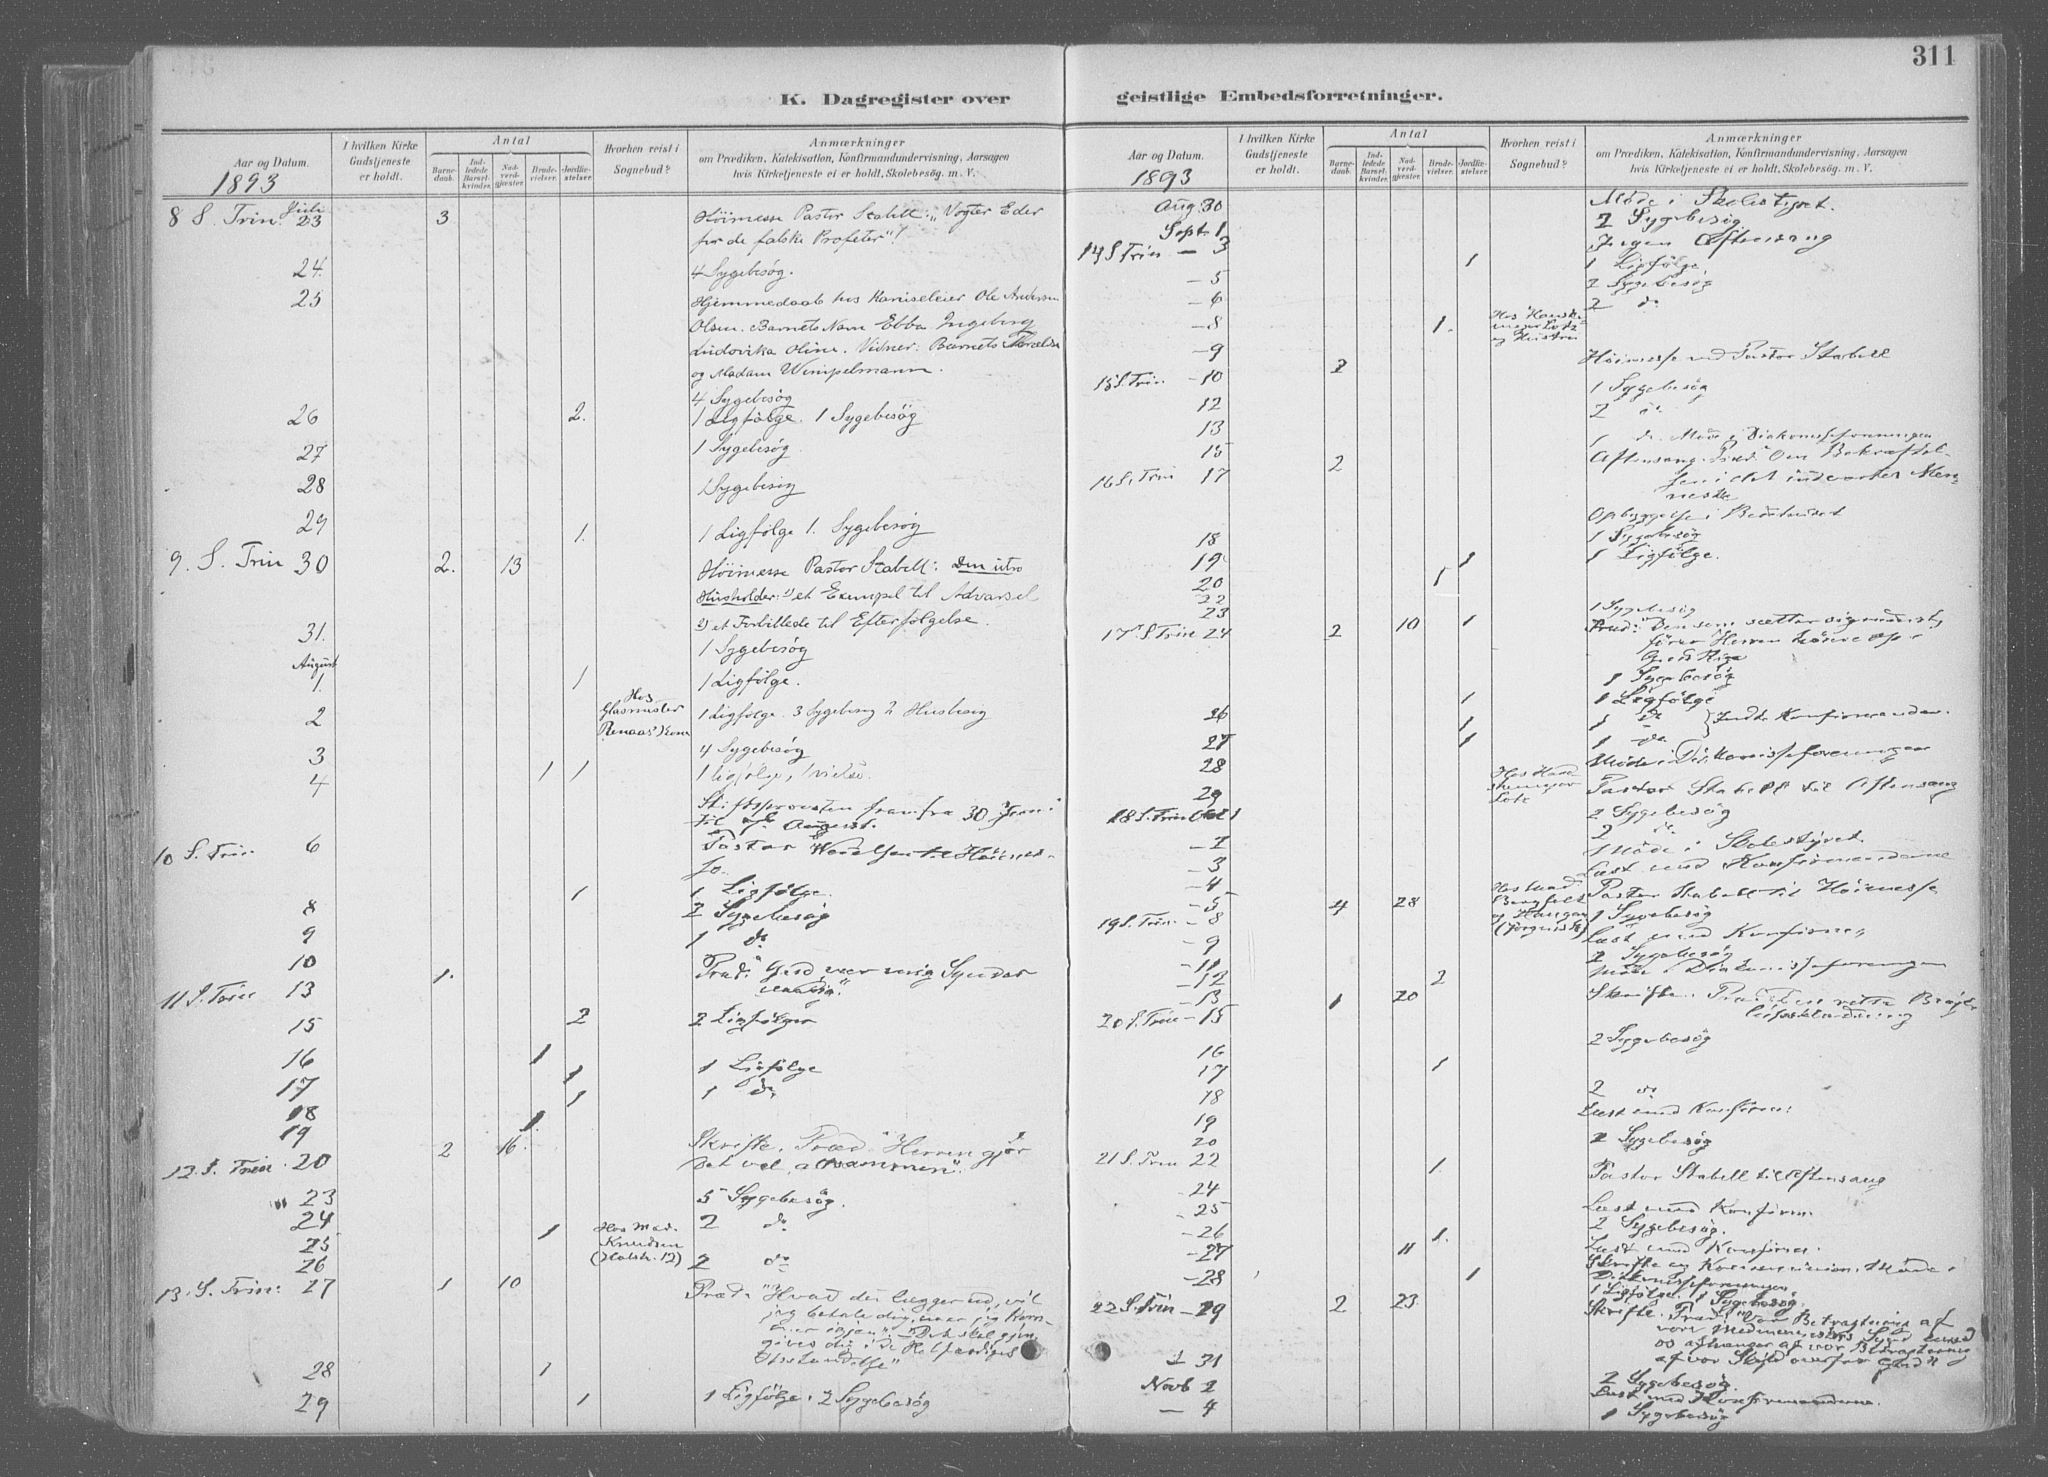 311
K. Dagregister over geistlige Embedsforretninger.
Aar og Datum.
1893
I hvilken Kirke Gudstjeneste er holdt.
Antal
Barnedaab.
Indledede Barselkvinder.
Nadverdgjester.
Brudevielser.
Jordfæstelser.
Hvorhen reist i Sognebud?
Anmærkninger
om Prædiken, Katekisation, Konfirmandundervisning, Aarsagen
hvis Kirketjeneste ei er holdt, Skolebesøg. m. V.
8 S. Trin. Juli 23 3 Höimesse Pastor Stabell: "Vogter Eder
for de falske Profeter"!
24. 4 Sygebesög.
25 Hjemmedaab hos Ole Andersen
Olsen. Barnets Navn Ebba Ingeborg
Ludovika Oline. Vidner: Barnets Forældre
og Madam Wimpelmann.
4 Sygebesög
26 2. 1 Ligfölge. 1 Sygebesög
27 1 Sygebesög.
28 1 Sygebesög
29 1. 1 Ligfölge 1. Sygebesög
9. S. Trin 30 2. 13 Höimesse Pastor Stabell: Den utro
Husholder: 1) et Exempel til Advarsel
2) et Forbillede til Efterfölgelse.
31. 1 Sygebesög
August
1. 1 1 Ligfölge.
2 Hos Glasmester Kone 1 Ligfölge. 3 Sygebesög 2 Husbesög
3 4 Sygebesög
4 1 1 1 Ligfölge, 1 vielse.
Stiftsprovsten fra 30 Juni
til August.
10 S. Trin 6 Pastor til Höimes-
se.
8 1 1 Ligfölge.
9 2 Sygebesög
10 1 do
11 S. Trin 13 1. Præd: "Gud vær mig Synder
naadig".
15 2 2 Ligfölger
16 1
17 1 1 Ligfölge
18 1 1 do
19 1
12. S. Trin. 20 2 16. Skrifte. Præd. "Herren gjör
det vel, altsammen".
" 23 5 Sygebesög.
24 2 do
25 1 Hos Mad. Knudsen
26 2 do
13. S. Trin: 27 1 10 Præd: "Hvad du lægger ud, vil
jeg betale dig, naar jeg kom-
mer igjen". Det skal gjen-
gives dig i de Retfærdiges
Opstandelse"
28 1
29 1 1 Ligfölge. 2 Sygebesög
Aar og Datum.
1893
I hvilken Kirke Gudstjeneste er holdt.
Antal
Barnedaab.
Indledede Barselkvinder.
Nadverdgjester.
Brudevielser.
Jordfæstelser.
Hvorhen reist i Sognebud?
Anmærkninger
om Prædiken, Katekisation, Konfirmandundervisning, Aarsagen
hvis Kirketjeneste ei er holdt, Skolebesøg. m. V.
Aug. 30 Möde i Skolestyret.
Sept. 1 2 Sygebesög
14 S Trin - 3 Ingen Aftensang
1 1 Ligfölge.
- 5 2 Sygebesög
- 6 2 do
- 8 1. og Hustru
- 9 Höimesse ved Pastor Stabell
15 S. Trin - 10 2
1 Sygebesög
12 2 do
13
15 1 do. Möde i Diakonisseforeningen
16 S. Trin 17 2 Aftensang. Præd: Den Bekræftel-
sen i det indvortes Men-
neske
Opbyggelse i Bedehuset
18 1 Sygebesög
19 1 1 Ligfölge.
20 1
22
23 1 1 Sygebesög
17 S Trin 24 2 10 Præd: "Den som sætter sig nederst,
förer Herren höiere op i
Guds Rige
1 Sygebesög
26 1 1 Ligfölge
1 1 do
27 1 1 do Konfirmander.
28 Möde i Diakonisseforeningen
29 Pastor Stabell til Aftensang
18 S. Trin Oct 1 2 Sygebesög
- 2 2 do
- 3 Möde i Skolestyret.
- 4 Læst med Konfirmanderne
- 5 4 28 Pastor Stabell til Höimesse
19 S. Trin - 8 1 Sygebesög
- 9 Læst med Konfirm.
- 11 2 Sygebesög
- 12 2 Möde i Diakonisseforeningen
- 13 1 20 Skrifte. Præd: Den rette Bryl-
lupsklædning
20 S. Trin - 15
2 Sygebesög
16
17 1
18 2 do
19 Læst med Konfirm:
20 2 Sygebesög
21 S. Trin 22 1. Pastor Stabell til Aftensang
- 24
- 25 Læst med Konfirm.
- 26 1. 2 Sygebesög.
- 27 11 Læst med Konfirm.
- 28 1 Skrifte og Kommunion. Möde i
Diakonisseforeningen
1 Ligfölge. 1 Sygebesög.
22 S. Trin - 29 2 23 Skrifte. Præd: "Vor Betragtning af
vore Medmenneskers Synd imod
os afhænger af vor Betragtning
af vor Skyld overfor Gud"
- 31
Novb 2 2 Sygebesög
- 4 Læst med Konfirmanderne.
1 Sygebesög